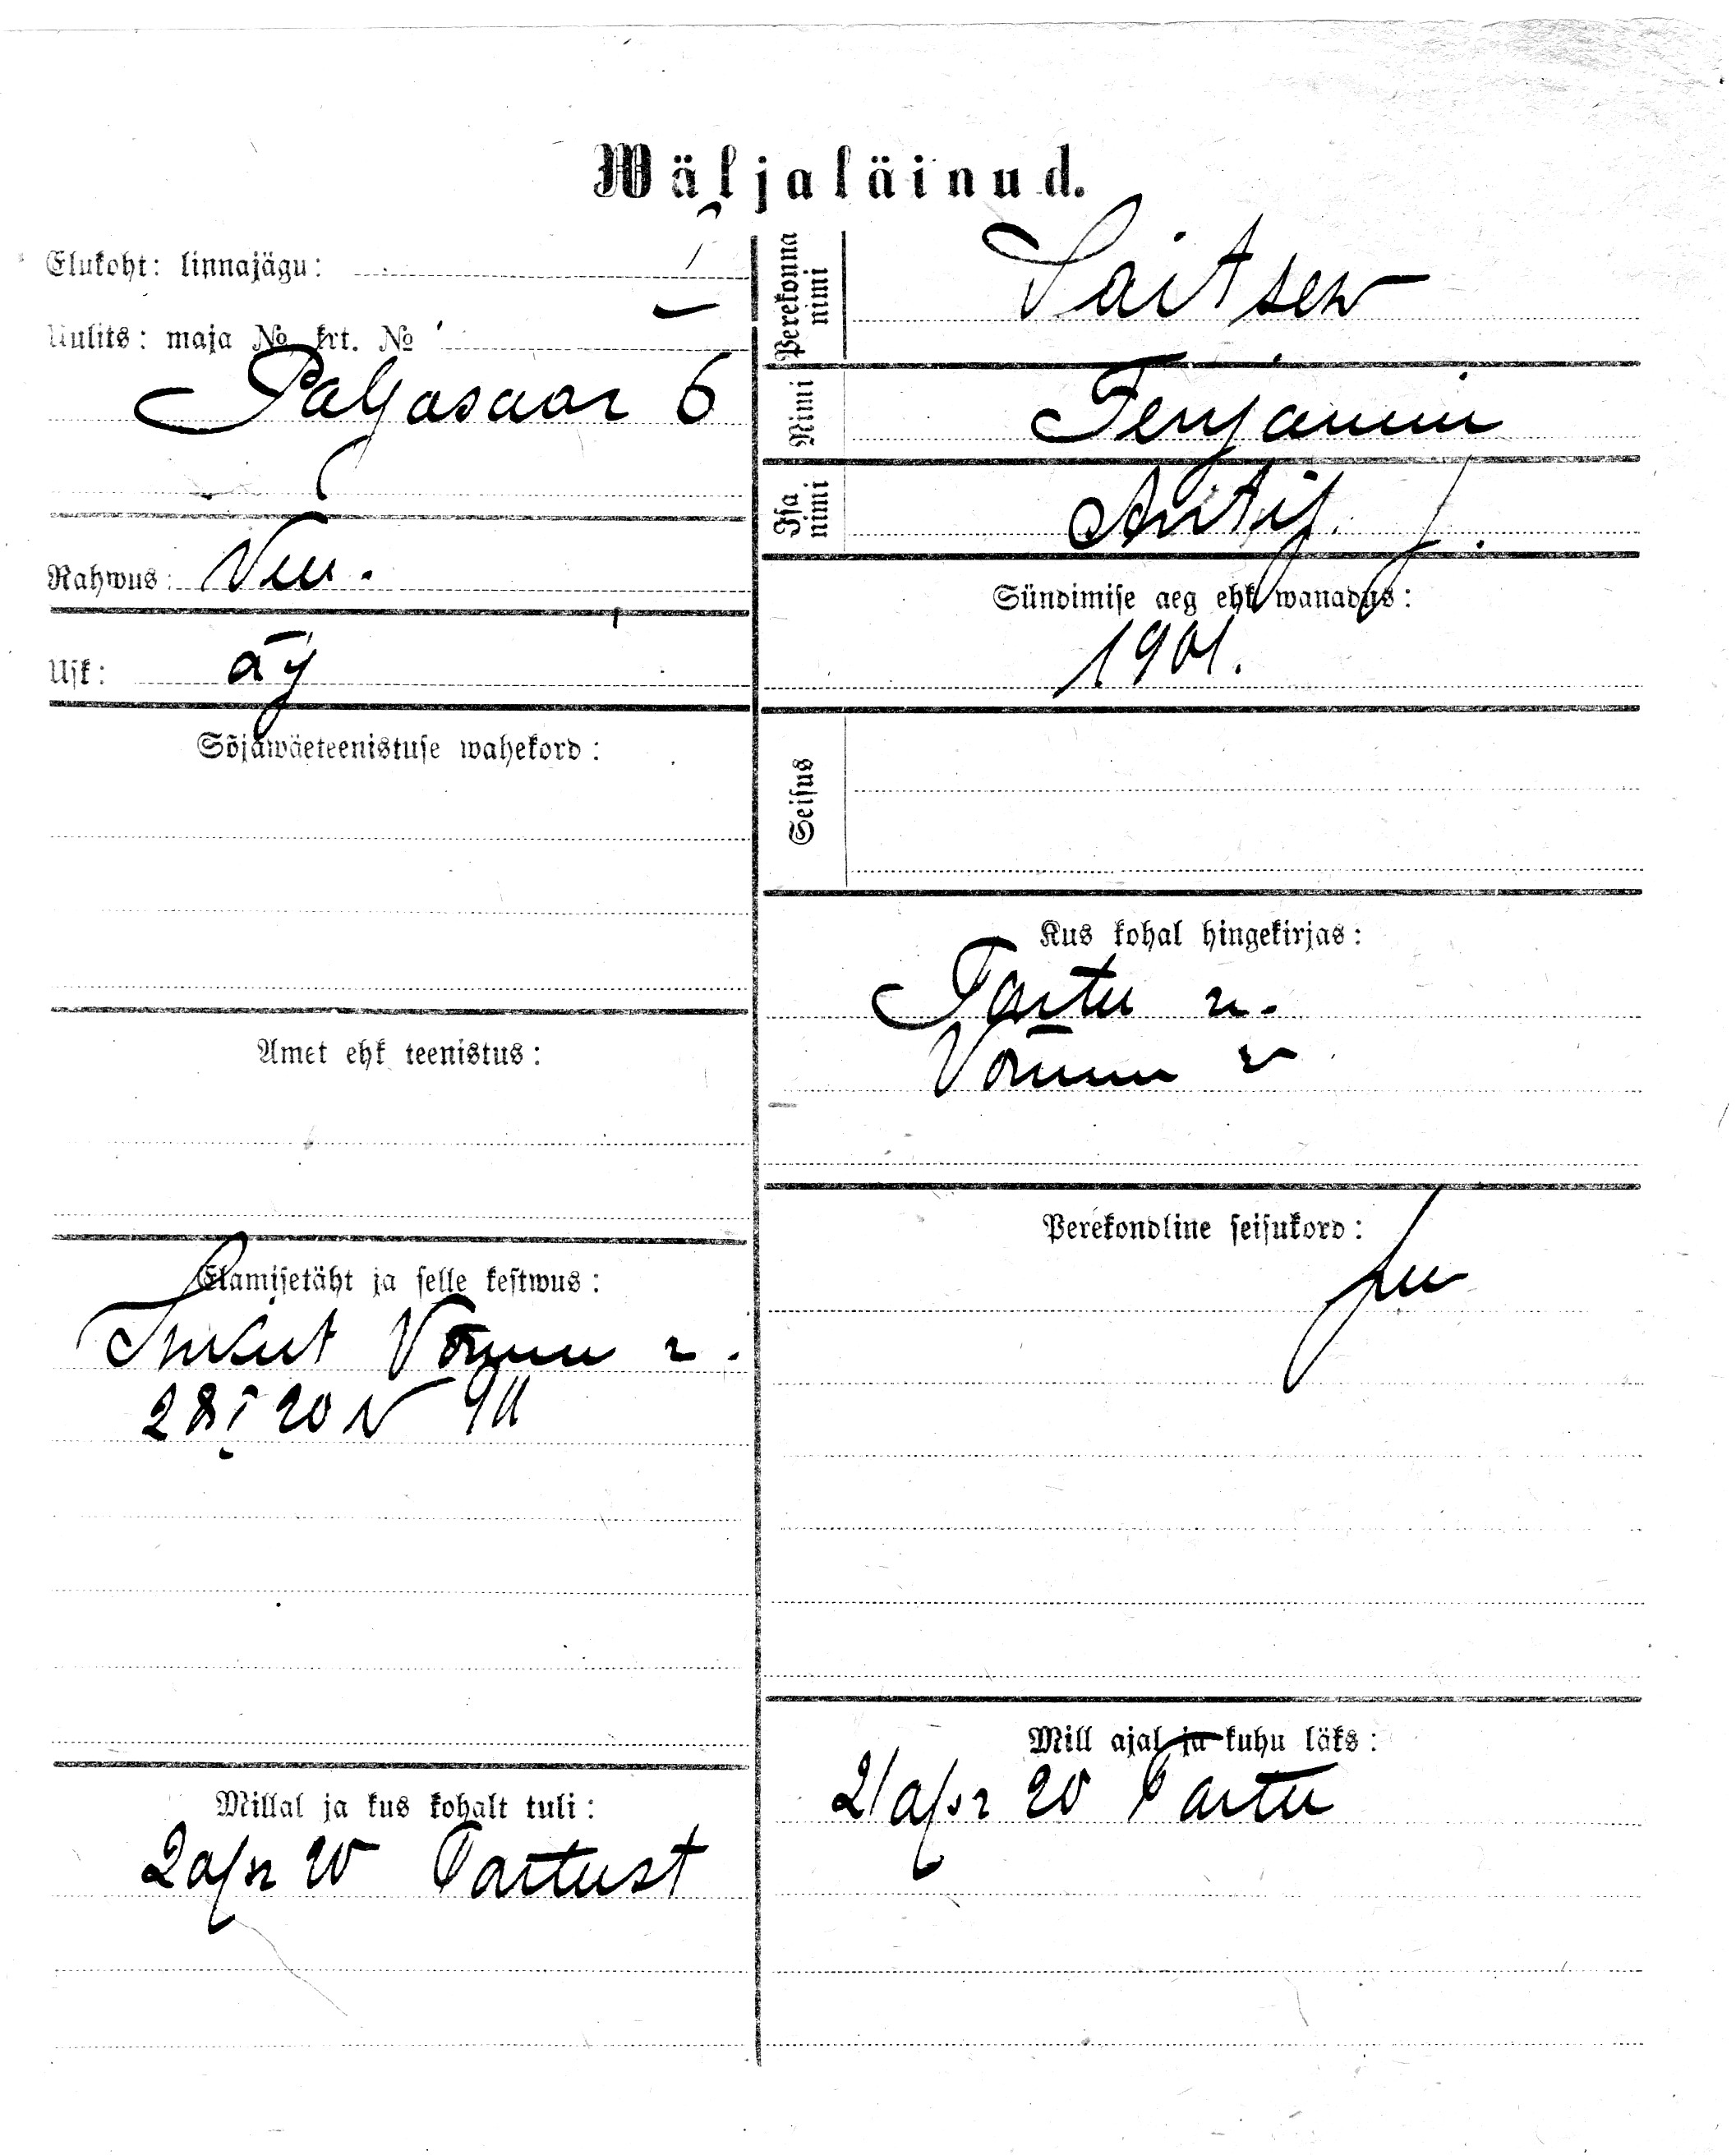 Wäljaläinud.
Elukoht: linnajägu: I
Uulits: maja № krt. №
Paljasaar 6
Rahwus: Ven.
Usk: ay
Sõjawäeteenistuse wahekord:
Amet ehk teenistus:
Elamisetäht ja selle kestwus:
Võnnu
28 I 20 N
Millal ja kus kohalt tuli:
2 apr 20 Tartust
Perekonna nimi Saitsew
Nimi
Isa nimi
Sündimise aeg ehk wanadus:
1901.
Seisus
Kus kohal hingekirjas:
Tartu
Võnnu v
Perekondline seisukord:
Mill ajal ja kuhu läks:
21 apr 20 Tartu